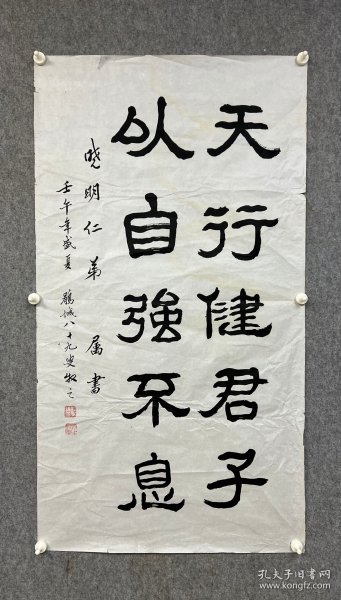 天行健君子
以自強不息
晓明仁弟属書
壬午年盛夏 鵬城八十九叟牧之
孔夫子旧书网
www.kongfz.com